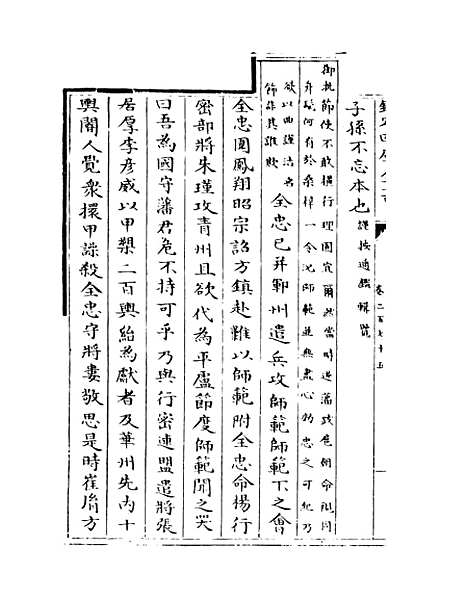 卷二百七十五
子孫不忘本也謹按通鑑輯覽
御批節使不敢橫行理固宜爾然當時逆藩跋扈朝命視同
弁髦何有於桑梓一令況師範並無肅心効忠之可紀乃
欲以曲謹沽名
飾詐其誰欺
全忠已并鄆州遣兵攻師範師範下之會
全忠圍鳳翔昭宗詔方鎮赴難以師範附全忠命楊行
密部將朱瑾攻青州且欲代為平盧節度師範聞之哭
曰吾為國守藩君危不持可乎乃與行密連盟遣將張
居厚李彥威以甲槊二百輿紿為獻者及華州先内十
輿閽人覺衆擐甲譟殺全忠守將婁敬思是時崔胤方